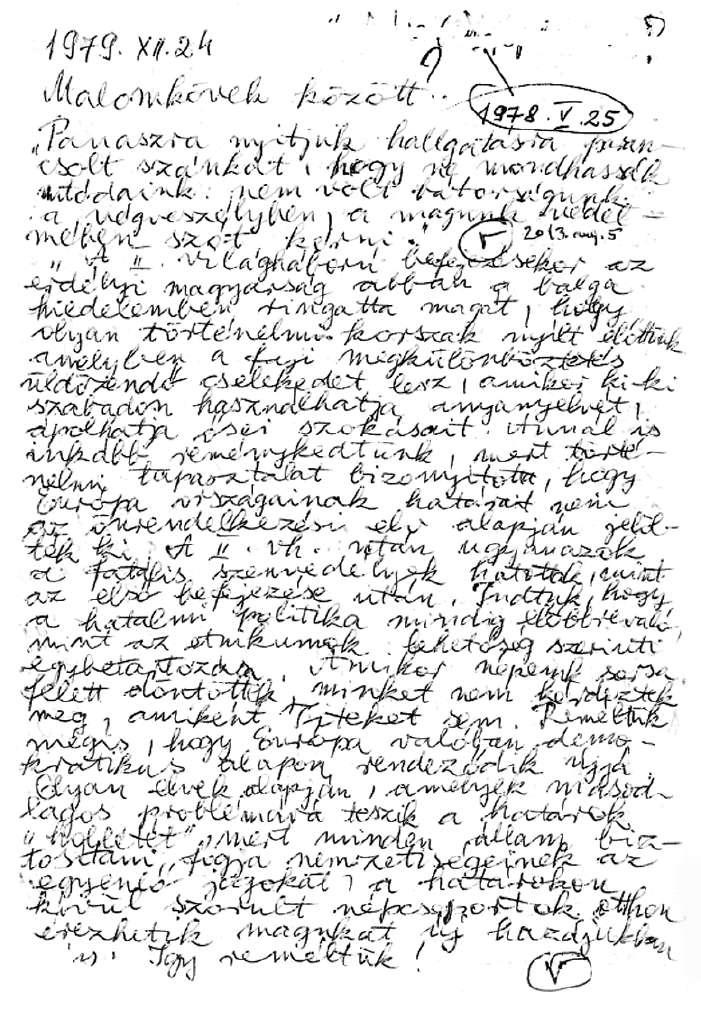 1979. XII. 24
?
Malomkövek között..
1978. V. 25
„Panaszra nyitjuk hallgatásra paran-
csolt szánkat, hogy ne mondhassák
utódaink: nem volt bátorságunk
a végveszélyben, a magunk védel-
mében szót kérni." 2013. aug. 5
„A II. világháború befejezésekor az
erdélyi magyarság abban a balga
hiedelemben ringatta magát, hogy
olyan történelmi korszak nyílt előttünk
amelyben a faji megkülönböztetés
üldözendő cselekedet lesz, amikor ki-ki
szabadon használhatja anyanyelvét,
ápolhatja ősei szokásait. Annál is
inkább reménykedtünk, mert törté-
nelmi tapasztalat bizonyította, hogy
Európa országainak határait nem
az önrendelkezési elv alapján jelöl-
ték ki. A II. vh. után ugyanazok
a fatális szenvedélyek hatottak, mint
az első befejezése után. Tudtuk, hogy
a hatalmi politika mindig előbbrevaló,
mint az etnikumok lehetőség szerinti
egybetartozása. Amikor népünk sorsa
felett döntöttek minket nem kérdeztek
meg, amiként Titeket sem. Reméltük
mégis, hogy Európa valóban demo-
kratikus alapon rendeződik újjá.
Olyan elvek alapján, amelyek másod-
lagos problémává teszik a határok
"hollétét", mert minden állam biz-
tosítani fogja nemzetiségeinek az
egyenlő jogokat, a határokon
kívül szorult népcsoportok otthon
érezhetik magukat új hazájukban
is. Így reméltük!